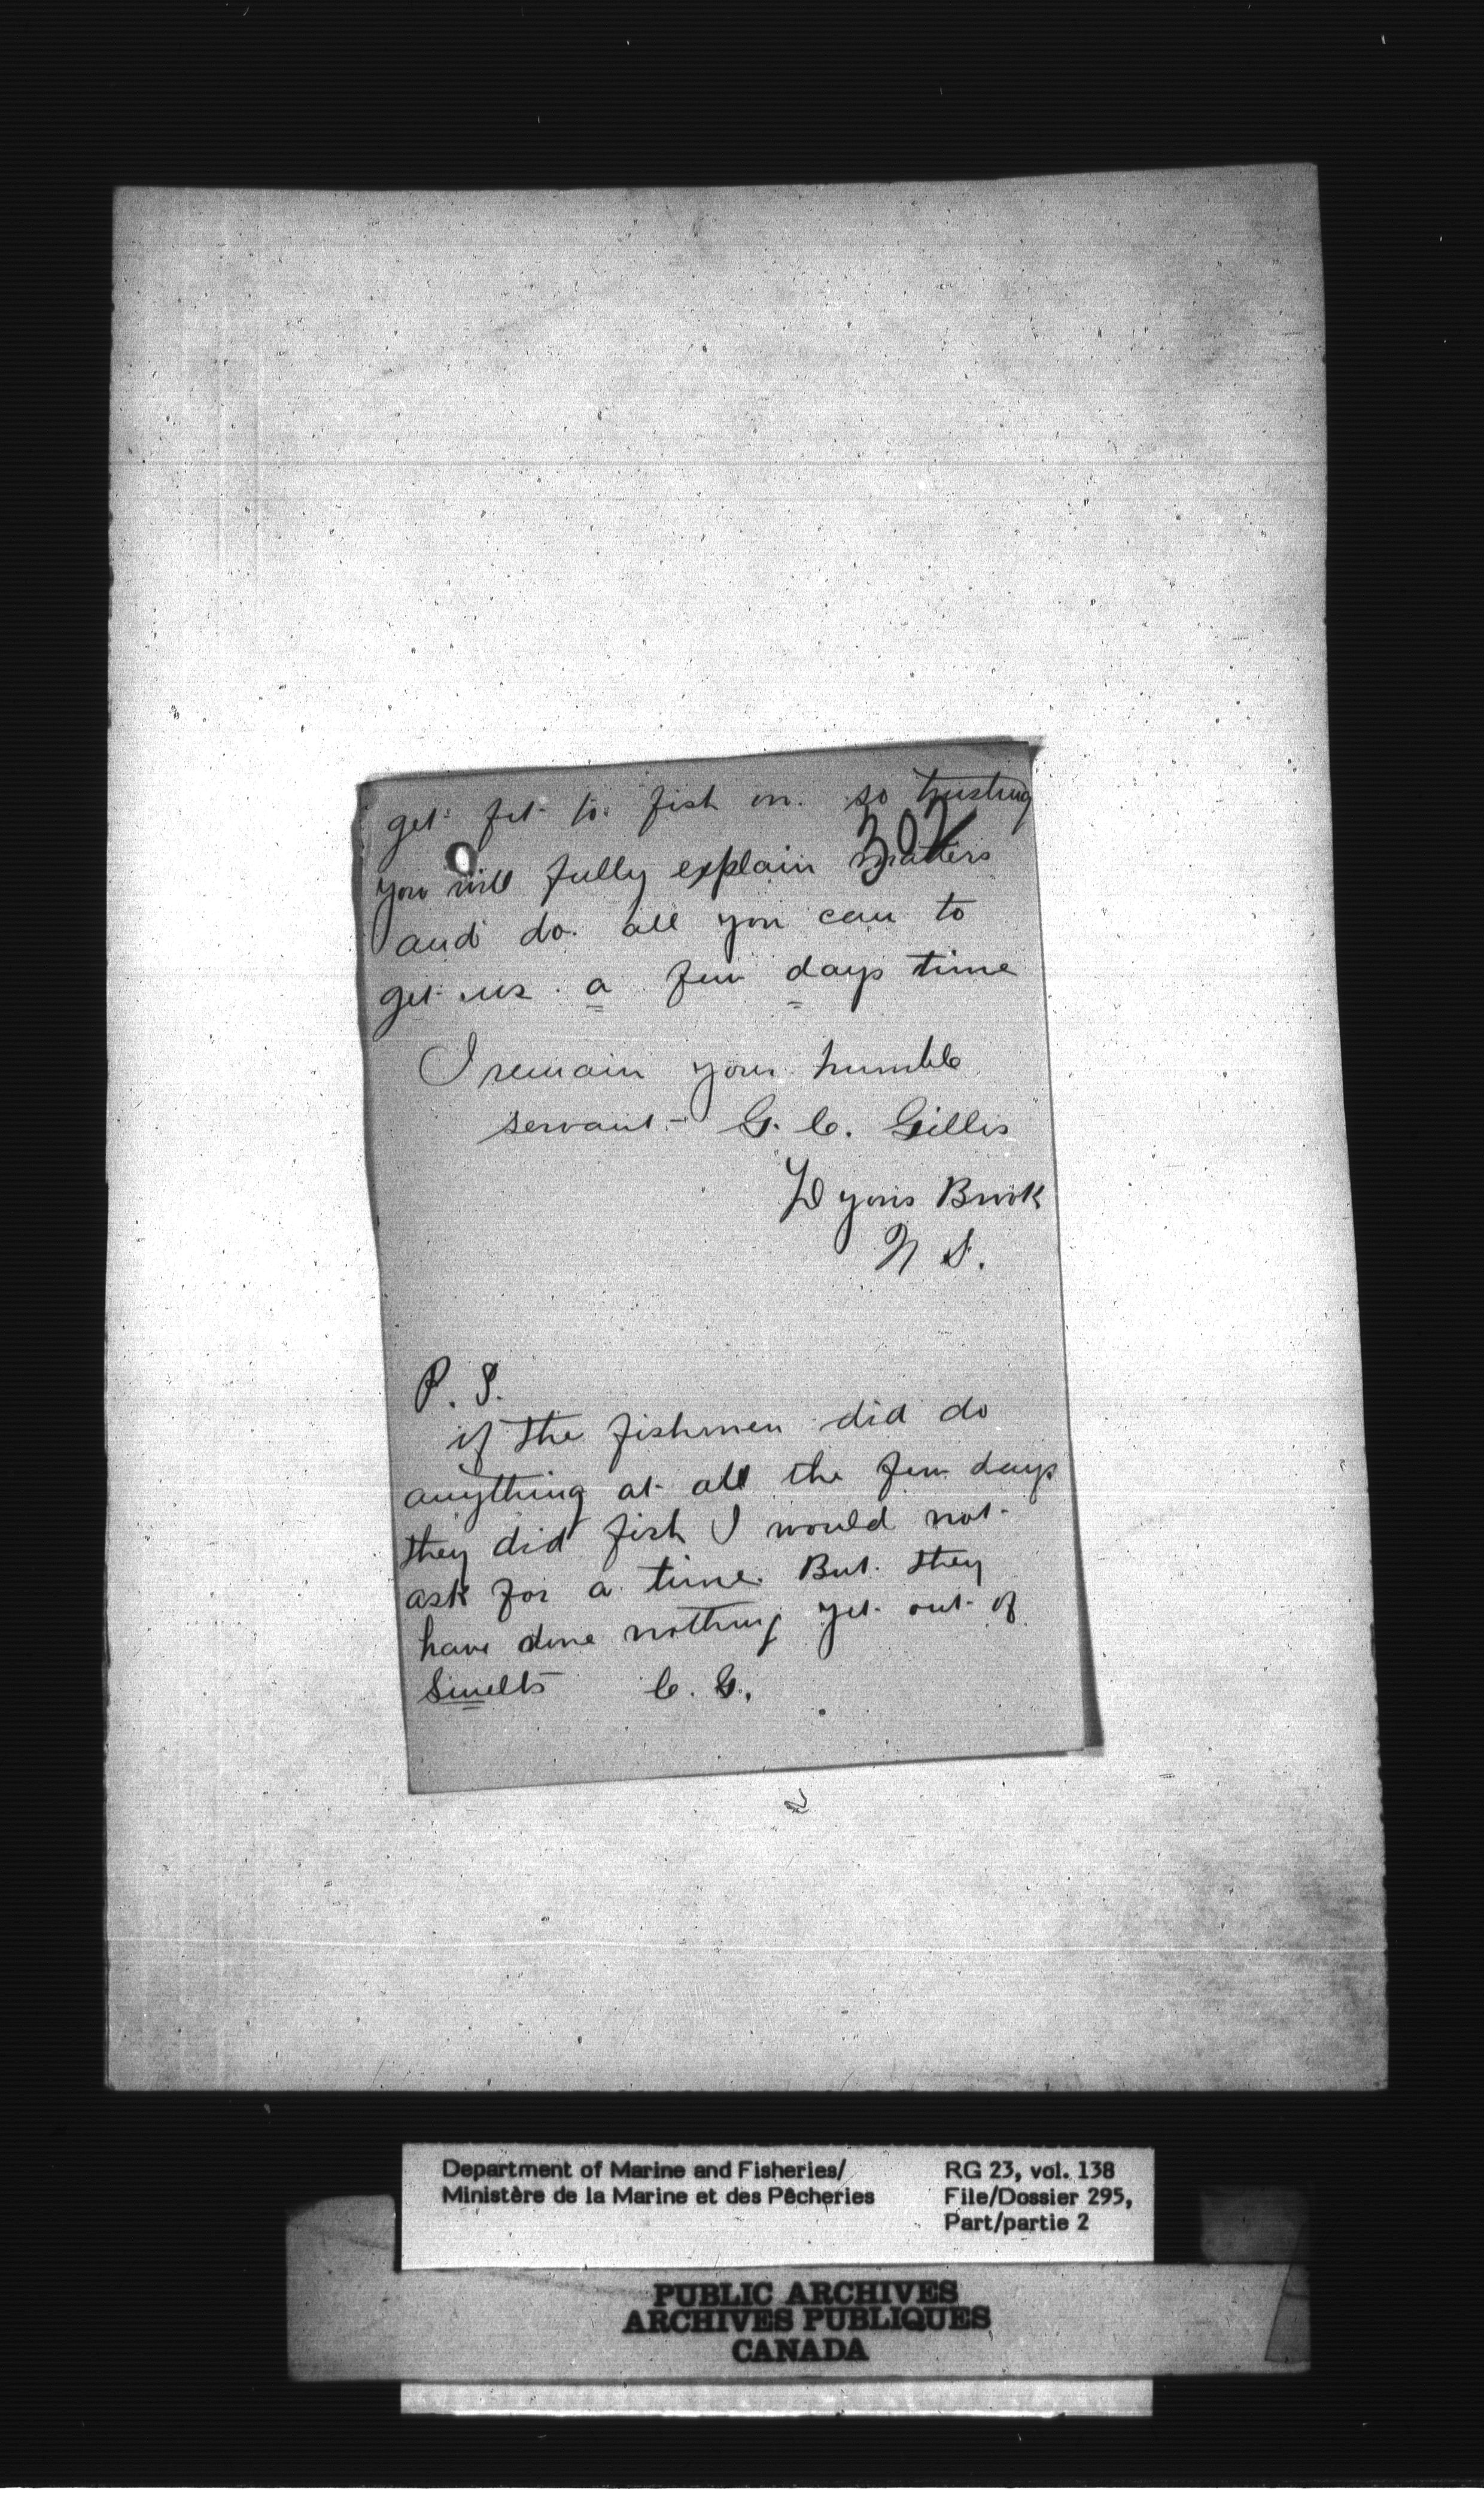 get fit to fish on. so trusting
302
you will fully explain matters
and do all you can to
get us a few days time
I remain your humble
servant - G. C. Gillis
Lyons Brook
N S.
P. S.
if the fishmen did do
anything at all the few days
they did fish I would not
ask for a time. But they
have done nothing yet out of
Smelts C. G.
Department of Marine and Fisheries/
Ministère de la Marine et des Pêcheries
RG 23, vol. 138
File/Dossier 295,
Part/partie 2
PUBLIC ARCHIVES
ARCHIVES PUBLIQUES
CANADA